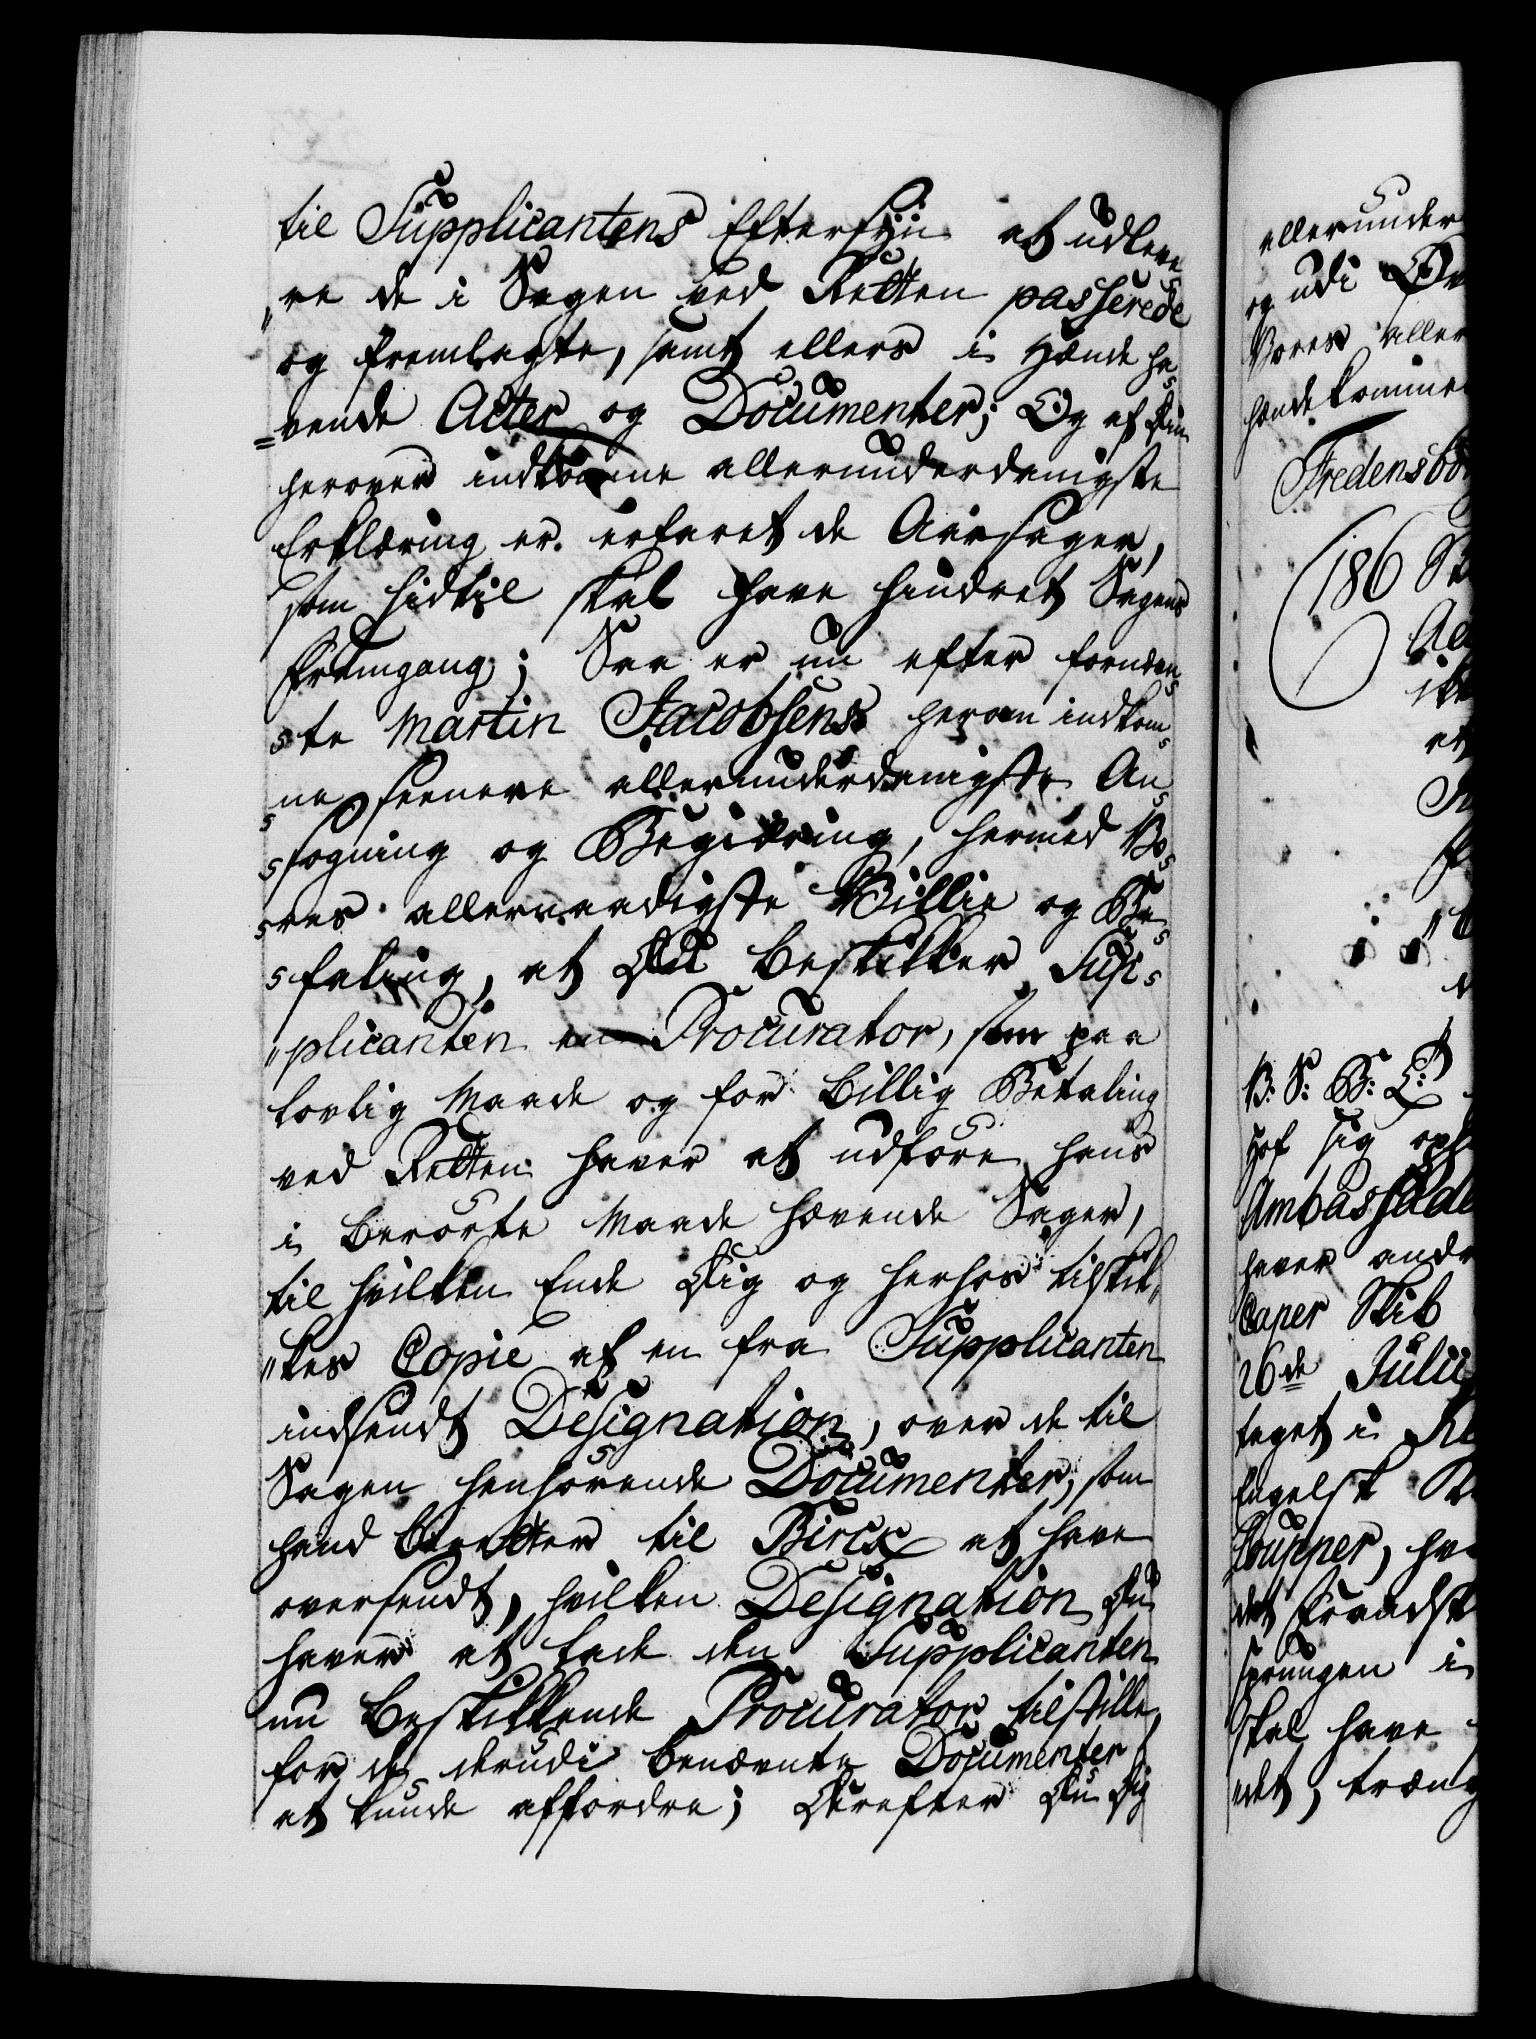 til Supplicantens Eftersyn at udleve¬
re de i Sagen ved Retten passerede
og fremlagte, samt ellers i Hænde ha¬
vende Acter og Documenter; Og af din
herover indkomne allerunderdanigste
Erklæring er erfaret de Aarsager,
som hidtil skal have hindret Sagens
Fremgang; Saa er nu efter fornævn¬
te Martin Jacobsens herom indkom¬
ne seenere allerunderdanigste An¬
søgning og Begiæring, hermed Vo¬
res allernaadigste Villie og Be¬
faling, at Du beskikker Sup¬
plicanten en Procurator, som paa
lovlig Maade og for billig Betaling
ved Retten haver at udføre hans
i berørte Maade havende Sager,
til hvilken Ende Dig og herhos tilskik¬
kes Copie af en fra Supplicanten
indsendt Designation, over de til
Sagen henhørende Documenter, som
hand beretter til Birck at have
oversendt, hvilken Designation Du
haver at lade den Supplicanten
nu beskikkende Procurator tilstille,
for de derudi benævnte Documenter
at kunde affordre; Derefter Du Dig
allerunder
og udi
Vores aller
hænde komme
Fredensbor
186
et
V: S: G: E:
Hof sig oph
Ambassade
haver andr
Caper Skib
26de Julii
taget i
Engelsk
det Frandsk
sprungen i
skal have
det, træng